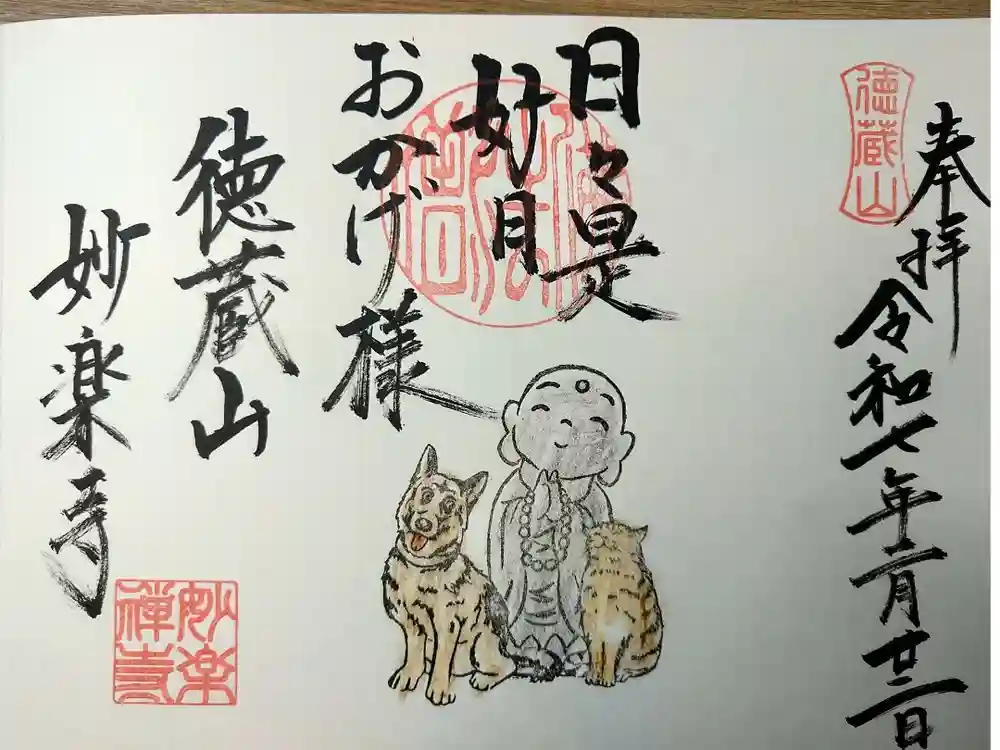 徳蔵山
奉拝
令和七年二月廿二日
日々是
好日
おかげ様
徳蔵山
妙楽寺
妙楽
禅寺